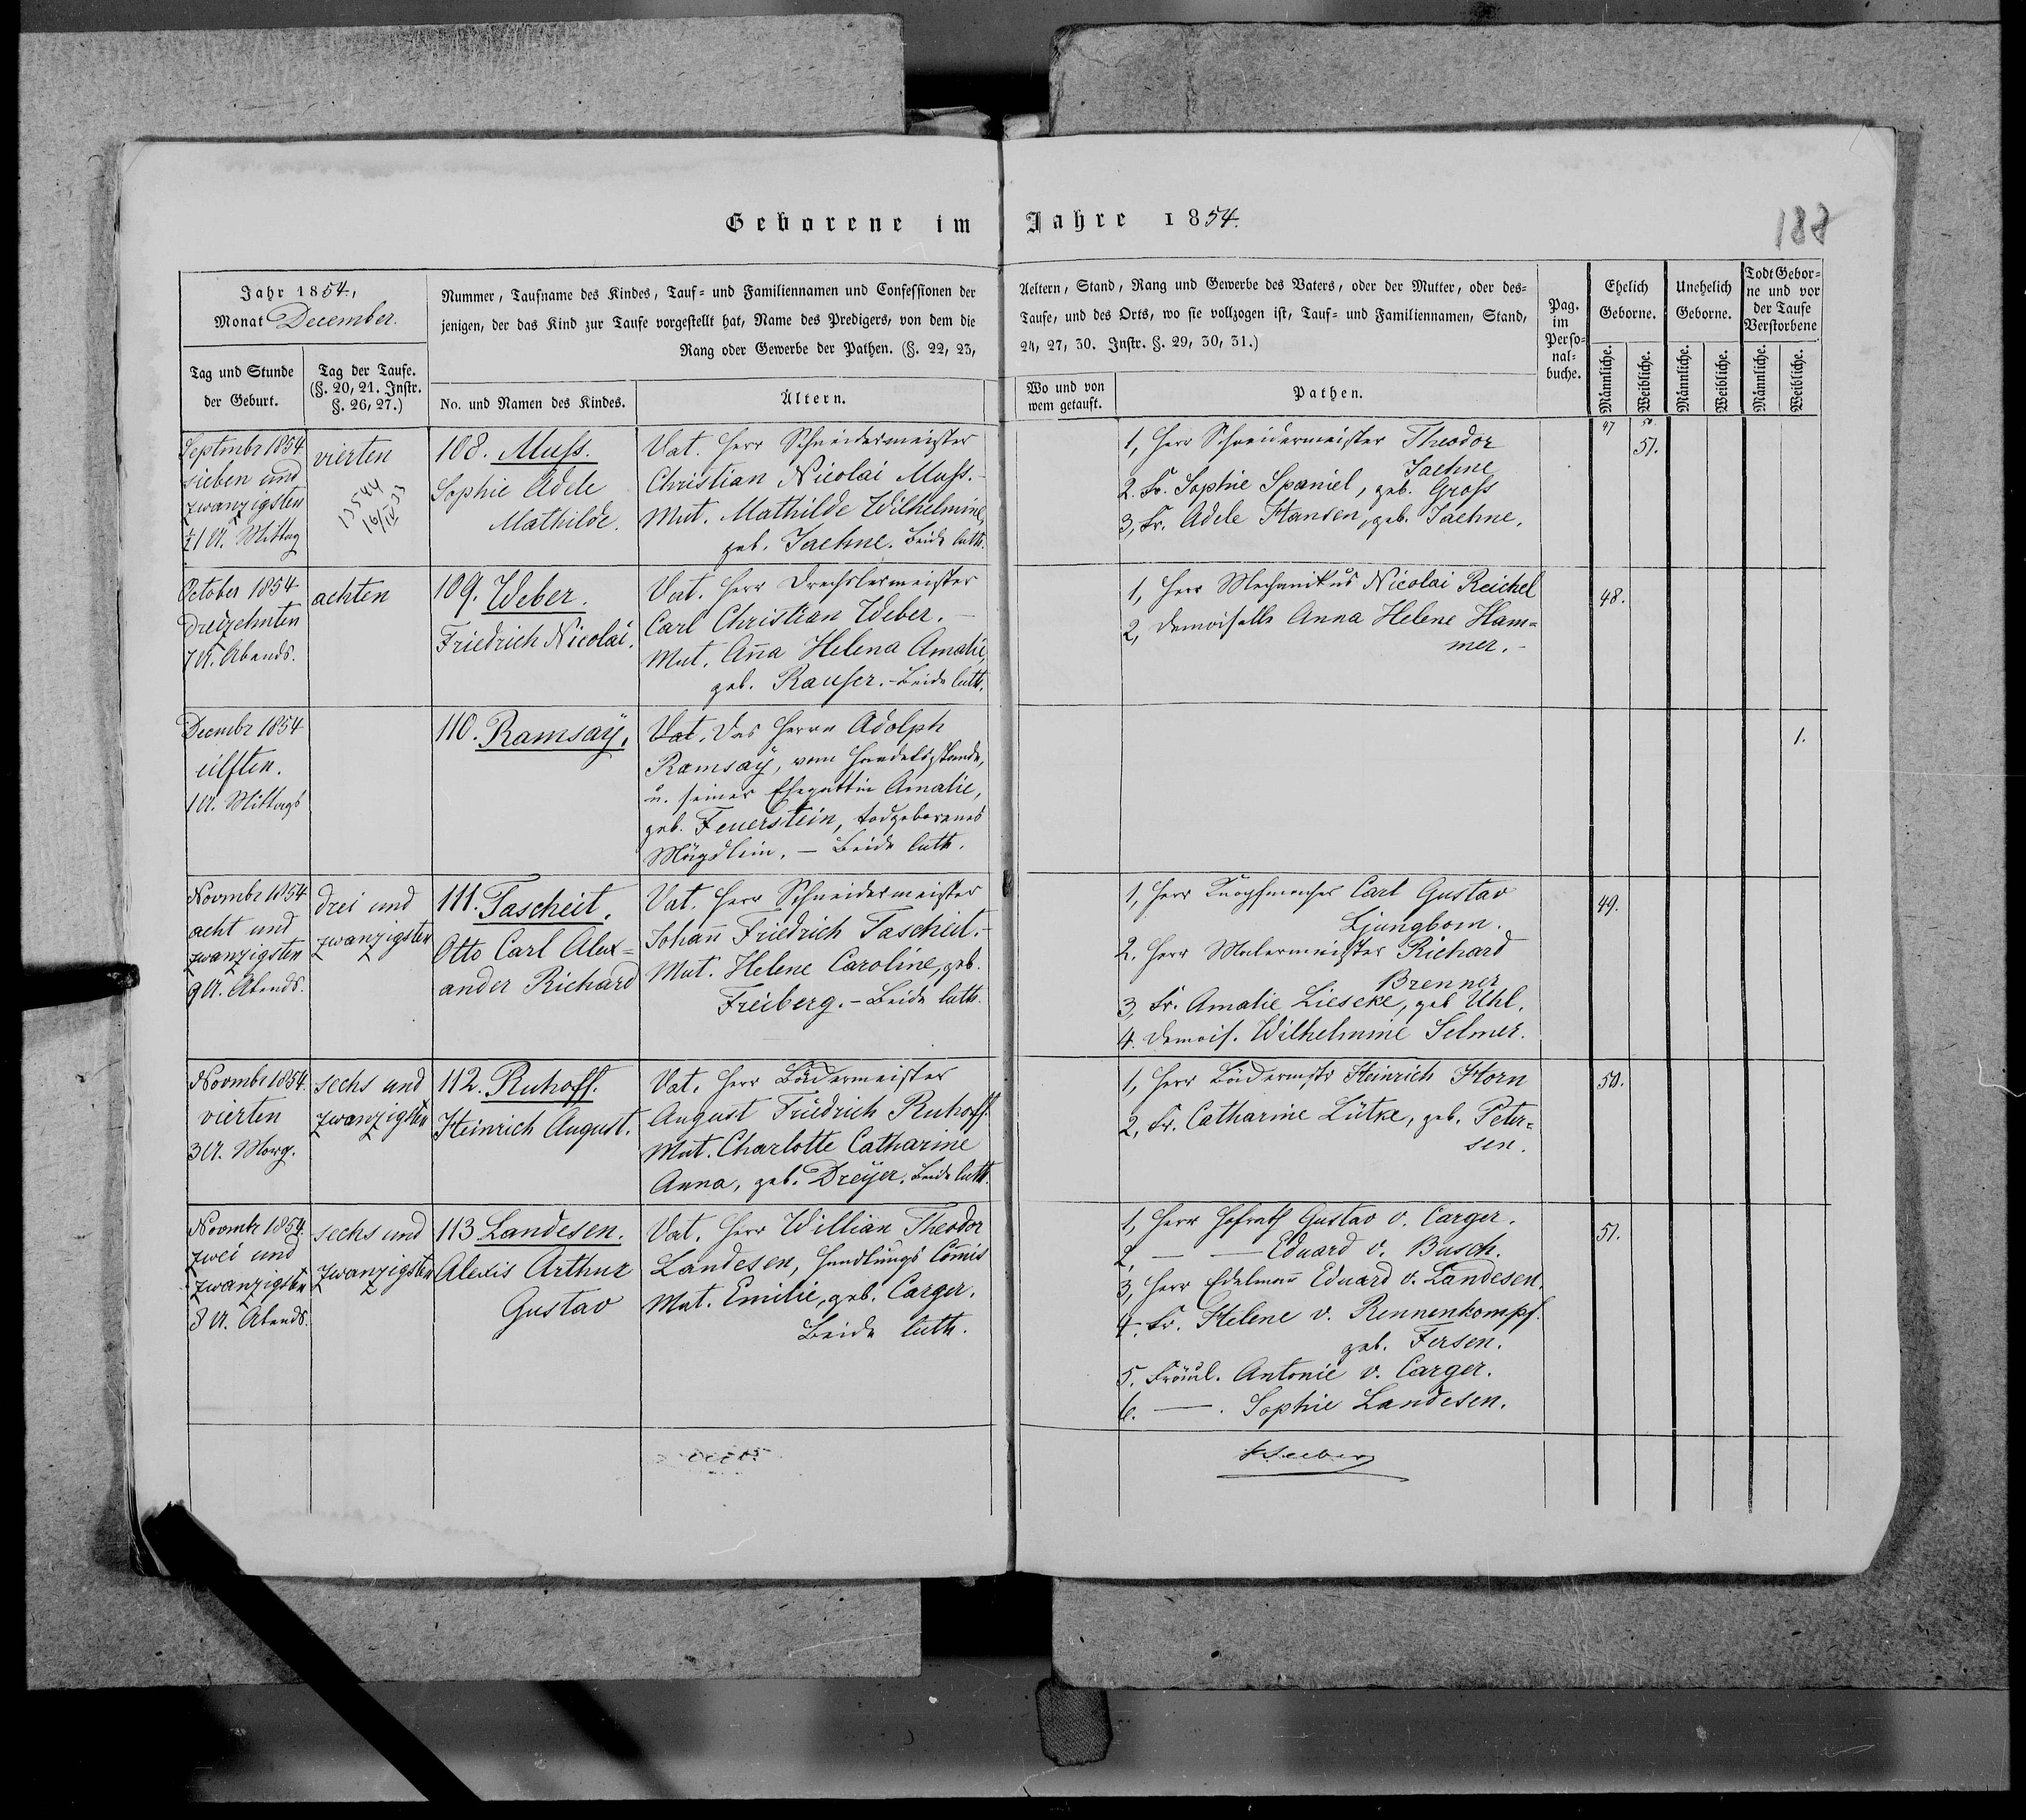 Geborene im Jahre 1854.
188
Jahr 1854,
Monat December.
Nummer, Taufname des Kindes, Tauf- und Familiennamen und Confessionen der
jenigen, der das Kind zur Taufe vorgestellt hat, Name des Predigers, von dem die
Rang oder Gewerbe der Pathen. (§. 22, 23,
Aeltern, Stand, Rang und Gewerbe des Vaters, oder der Mutter, oder des-
Taufe, und des Orts, wo sie vollzogen ist, Tauf- und Familiennamen, Stand,
24, 27, 30. Instr. §. 29, 30, 31.)
Pag.
im
Perso-
nal-
buche.
Ehelich
Geborne.
Unehelich
Geborne.
Todt Gebor-
ne und vor
der Taufe
Verstorbene
Tag und Stunde
der Geburt.
Tag der Taufe.
(§. 20, 21. Instr.
§. 26, 27.)
No. und Namen des Kindes.
Ältern.
Wo und von
wem getauft.
Pathen.
Männliche.
Weibliche.
Männliche.
Weibliche.
Männliche.
Weibliche.
Septmbr 1854
sieben und
zwanzigsten
½1 U. Mittag
vierten
13544
16/IV 33
108. Muss.
Sophie Adele
Mathilde.
Vat. Herr Schneidermeister
Christian Nicolai Muss.-
Mut. Mathilde Wilhelmine,
geb. Jaehne. Beide luth.
1, Herr Schneidermeister Theodor
Jaehne
2. Fr. Sophie Spaniel, geb. Gross
3, Fr. Adele Hansen, geb. Jaehne.
47
50.
51.
October 1854
dreizehnten
7 U. Abends.
achten
109. Weber.
Friedrich Nicolai.
Vat. Herr Drechslermeister
Carl Christian Weber. -
Mut. Anna Helena Amalie,
geb. Rauser. - Beide luth.
1, Herr Mechanikus Nicolai Reichel
2, Demoiselle Anna Helene Ham-
mer. -
48.
Decmbr 1854
eilften.
1 U. Mittags
110. Ramsaÿ.
Vat. Des Herrn Adolph
Ramsaÿ, vom Handelsstande,
u. seiner Ehegattin Amalie,
geb. Feuerstein, todgeborenes
Mägdlein. - Beide luth.
1.
Novmbr 1854
acht und
zwanzigsten
9 U. Abends.
drei und
zwanzigsten
111. Tascheit.
Otto Carl Alex-
ander Richard
Vat. Herr Schneidermeister
Johann Friedrich Tascheit.-
Mut. Helene Caroline, geb.
Freiberg. - Beide luth.
1, Herr Carl Gustav
Ljungbom.
2. Herr Malermeister Richard
Brenner
3, Fr. Amalie Liescke, geb Uhl.
4. Demois. Wilhelmine Selmer.
49.
Novmbr 1854.
vierten
3 U. Morg.
sechs und
zwanzigsten
112. Ruhoff.
Heinrich August.
Vat. Herr Bäckermeister
August Friedrich Ruhoff.
Mut. Charlotte Catharine
Anna, geb. Dreÿer. Beide luth.
1, Herr Heinrich Horn
2, Fr. Catharine Lütke, geb. Peter-
sen.
50.
Novmbr 1854.
zwei und
zwanzigsten
8 U. Abends.
sechs und
zwanzigsten
113 Landesen.
Alexis Arthur
Gustav
Vat. Herr Willian Theodor
Landesen, Handlungs Commis
Mut. Emilie, geb. Carger.
Beide luth.
1, Herr Hofrath Gustav v. Carger.
2, — — Eduard v. Busch.
3, Herr Edelmann Eduard v. Landesen.
4. Fr. Helene v. Rennenkompf.
geb. Fersen.
5. Fräul. Antonie v. Carger.
6. —. Sophie Landesen.
51.